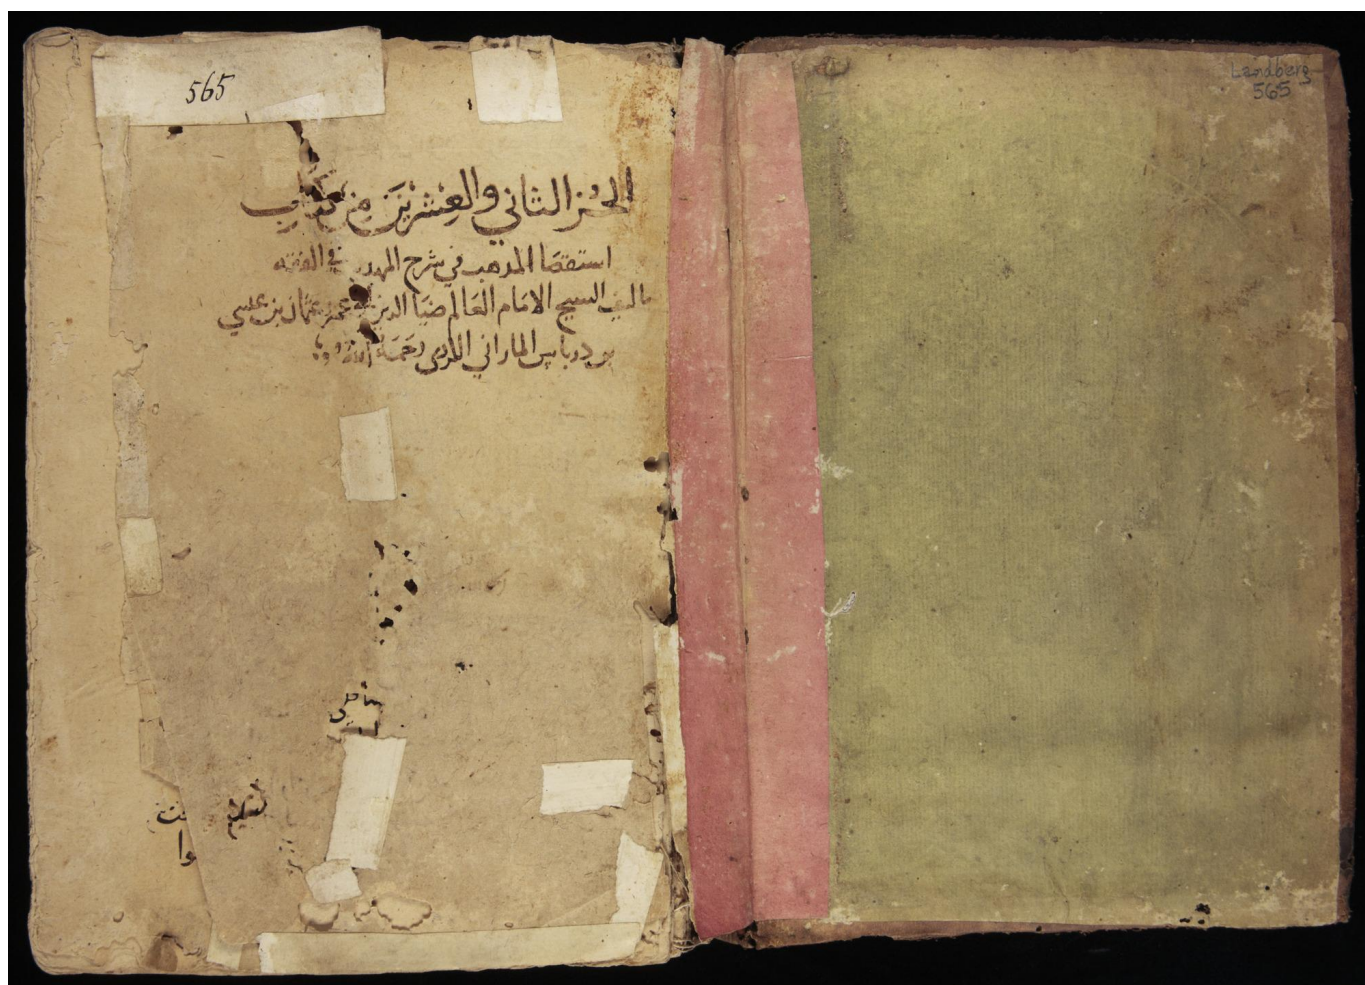 Landberg
565
565
الجزء الثاني والعشرين من كتاب
استقصا المذهب في شرح المهذب في الفقه
تاليف الشيخ الامام العالم ضيا الدين ابو عمر عثمان بن عيسى
بن درباس الماراني الكردي رحمه الله